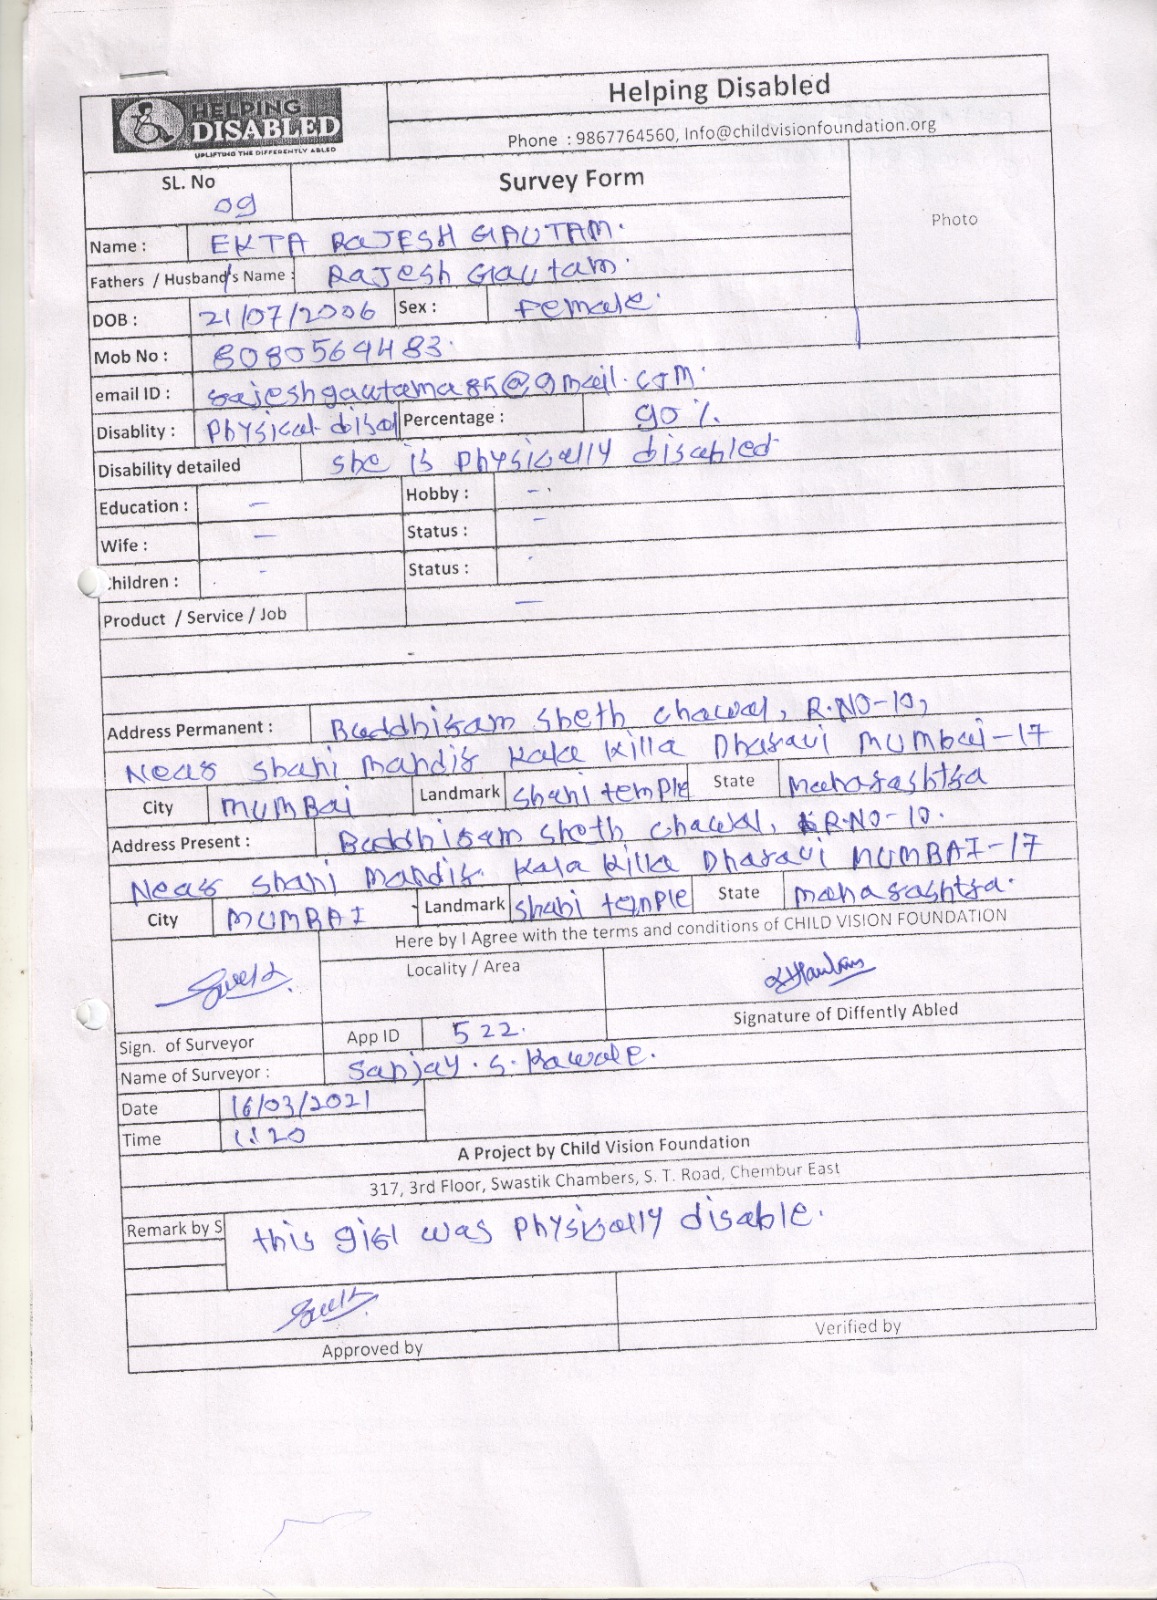 HELPING
DISABLED
UPLIFTING THE DIFFERENTLY ABLED
Helping Disabled
Phone : 9867764560, Info@childvisionfoundation.org
SL. No
09
Survey Form
Photo
Name : EKTA RAJESH GAUTAM.
Fathers / Husband's Name : Rajesh Gautam.
DOB : 21/07/2006 Sex : Female.
Mob No : 8080569483.
email ID : rajeshgautama85@gmail.com.
Disablity : Physical disa Percentage : 90 %.
Disability detailed she is physically disabled
Education : – Hobby : – .
Wife : – Status : –
Children : - Status : -
Product / Service / Job –
-
Address Permanent : Buddhiram sheth chawal, R.NO-10,
Near shani mandir kala killa Dharavi mumbai-17
City mumbai Landmark shani temple State maharashtra
Address Present : Buddhiram sheth chawal, R.NO-10.
Near shani mandir kala killa Dharavi MUMBAI-17
City MUMBAI Landmark shani temple State maharashtra.
Here by I Agree with the terms and conditions of CHILD VISION FOUNDATION
Locality / Area
Sign. of Surveyor App ID 522. Signature of Diffently Abled
Name of Surveyor : Sanjay . S. Kawale.
Date 16/03/2021
Time 1:20
A Project by Child Vision Foundation
317, 3rd Floor, Swastik Chambers, S. T. Road, Chembur East
Remark by S this girl was physically disable.
Approved by Verified by